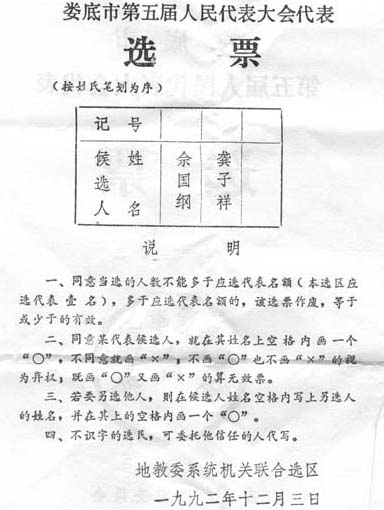 娄底市第五届人民代表大会代表
选 票
(按姓氏笔划为序)
记 号
候选人 姓名 佘国纲 龚子祥
说 明
一、同意当选的人数不能多于应选代表名额(本选区应
选代表 壹 名),多于应选代表名额的,该选票作废,等于
或少于的有效。
二、同意某代表候选人,就在其姓名上空格内画一个
“○”,不同意就画“×”;不画“○”也不画“×”的视
为弃权;既画“○”又画“×”的算无效票。
三、若要另选他人,则在候选人姓名空格内写上另选人
的姓名,并在其上的空格内画一个“○”。
四、不识字的选民,可委托他信任的人代写。
地教委系统机关联合选区
一九九二年十二月三日